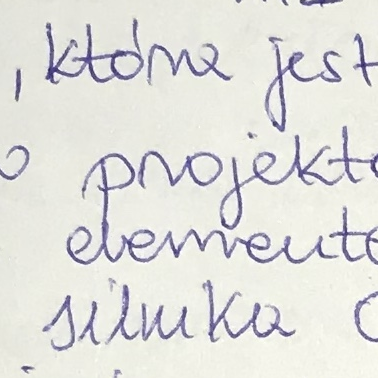 , która jest
projekto
elemento
silnika